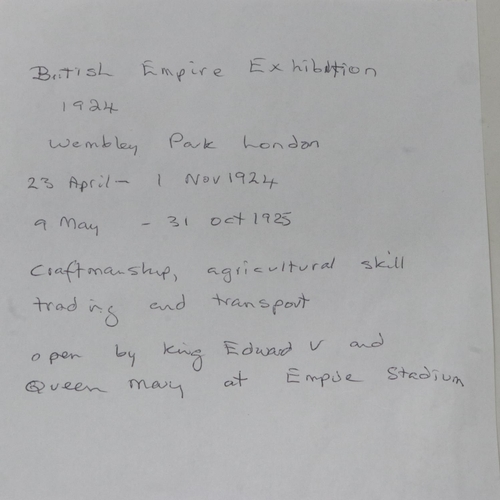 British Empire Exhibition
1924
Wembley Park London
23 April - 1 Nov 1924
9 May - 31 Oct 1925
Craftmanship, agricultural skill
trading and transport
open by King Edward V and
Queen Mary at Empire Stadium